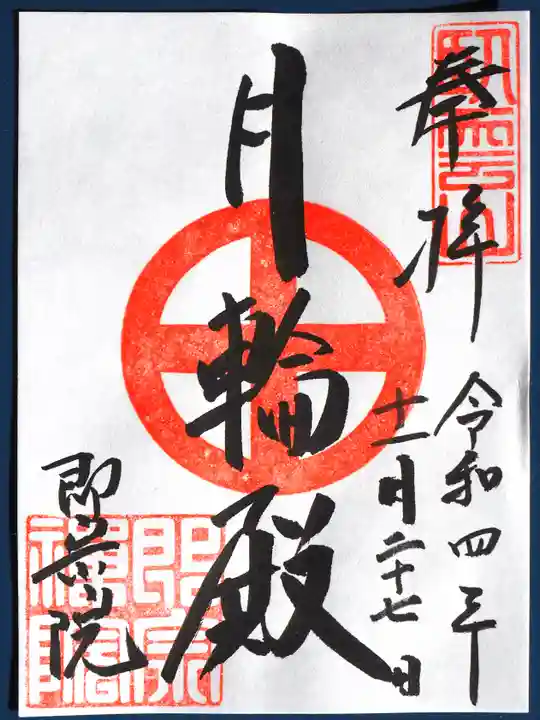 奉拝
令和四年
十一月二十七日
月輪殿
即宗院